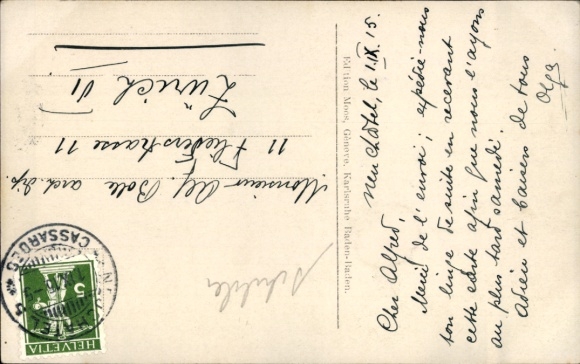 Neuchâtel, le 1.IX.15.
Cher Alfred,
Merci de l'envoi; expédie-nous
ton linge de suite en recevant
cette carte afin que nous l'ayons
au plus tard samedi.
Adieu et baisers de tous
Olga
Edition Moos, Genève, Karlsruhe Baden-Baden.
Monsieur Alf. Bolle arch. dip.
11 Fliederstrasse 11
Zürich VI
HELVETIA
5
CASSARDES